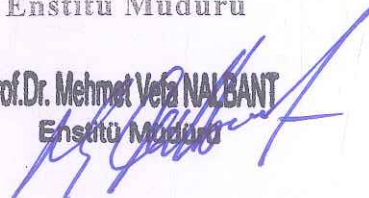 Enstitü Müdürü
of.Dr. Mehmet Vefa NALBANT
Enstitü Müdürü